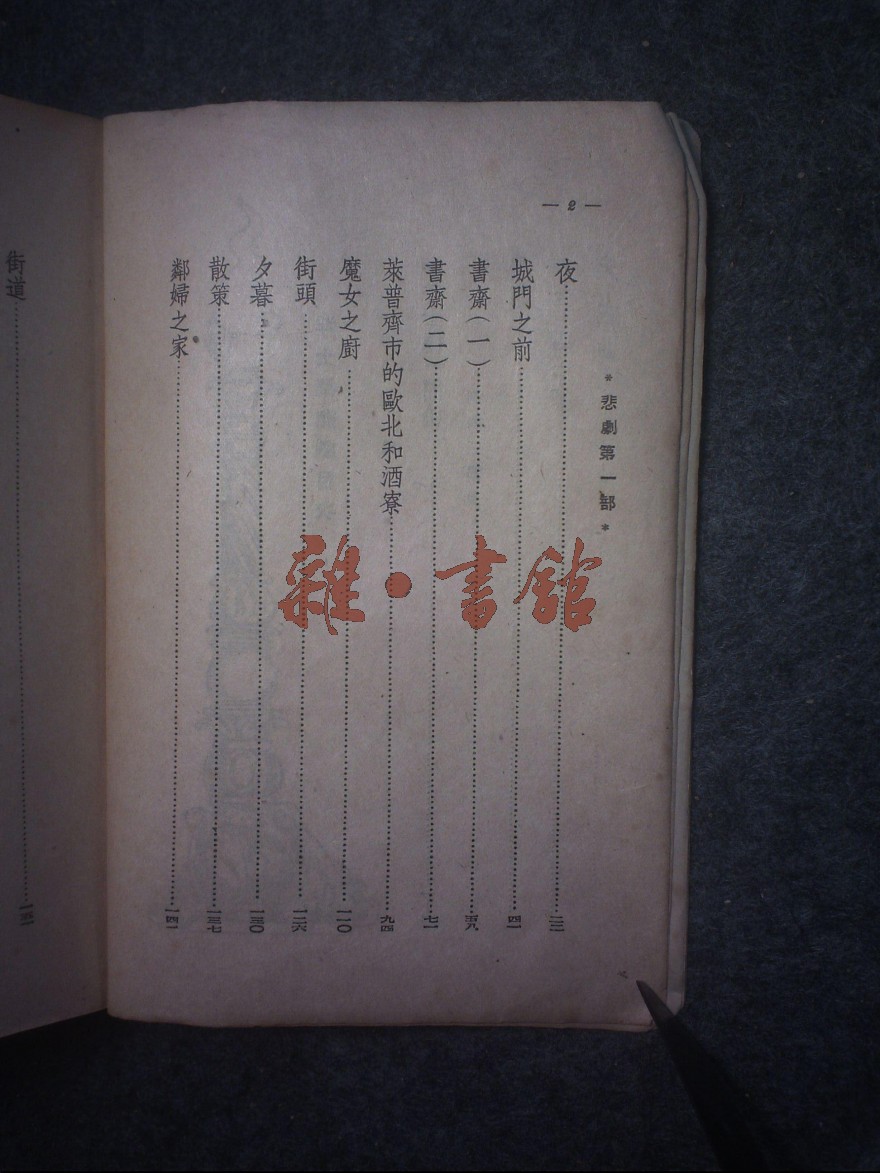 — 2 —
* 悲劇第一部 *
夜……
城門之前……四一
書齋(一)……五八
書齋(二)……七一
萊普齊市的歐北和酒寮……九四
魔女之廚……一一〇
街頭……一二六
夕暮……一三〇
散策……一三七
鄰婦之家……一四一
街道……
雜·書館